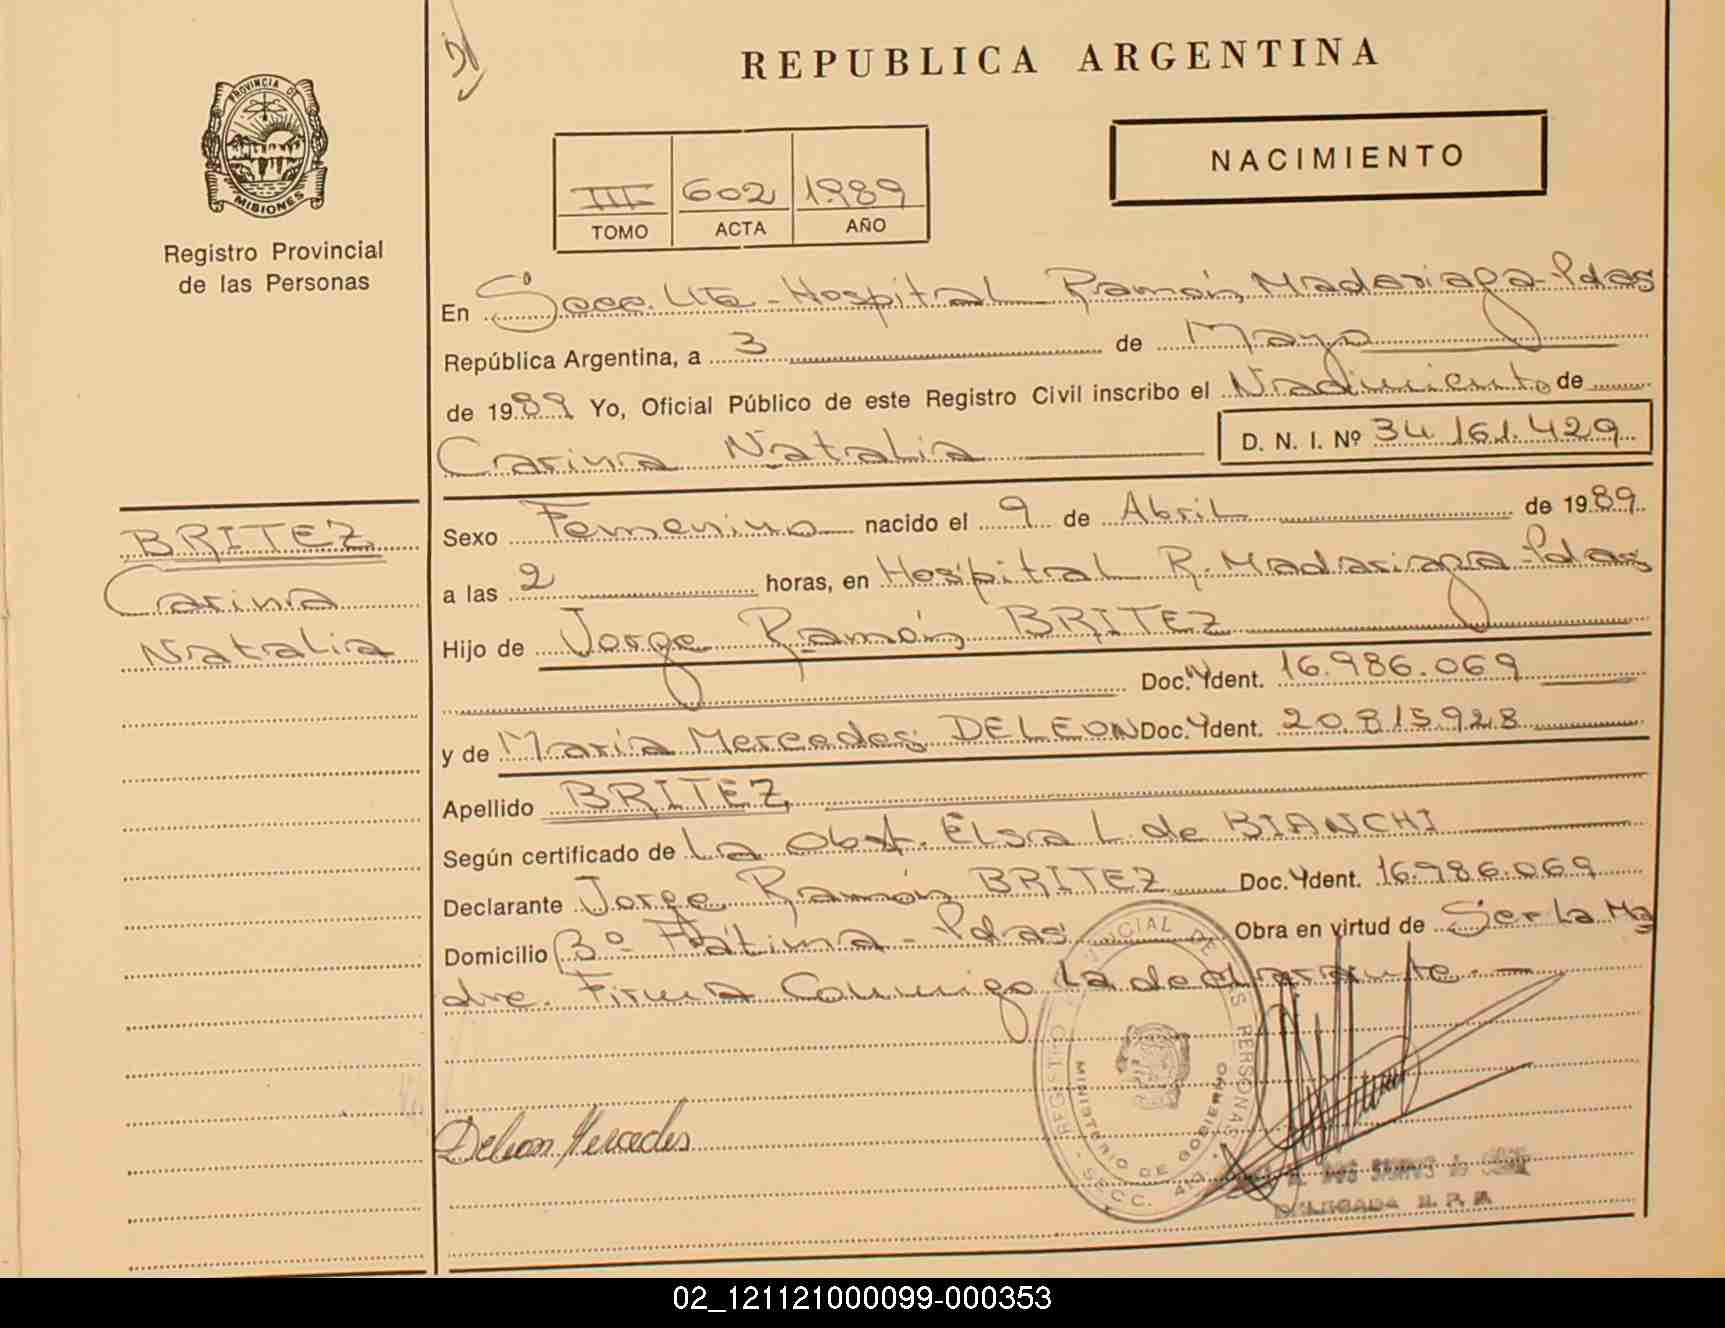 REPUBLICA ARGENTINA
PROVINCIA DE
MISIONES
Registro Provincial
de las Personas
III 602 1989
TOMO ACTA AÑO
NACIMIENTO
En Secc. 4ta - Hospital Ramón Madariaga - Pdas
República Argentina, a 3 de Mayo
de 1989 Yo, Oficial Público de este Registro Civil inscribo el Nacimiento de
Carina Natalia D. N. I. Nº 34.161.429
BRITEZ
Carina
Natalia
Sexo Femenino nacido el 9 de Abril de 1989
a las 2 horas, en Hospital R. Madariaga - Pdas
Hijo de Jorge Ramón BRITEZ
Doc. Ydent. 16.986.069
y de María Mercedes DELEON Doc. Ydent. 20.815.928
Apellido BRITEZ
Según certificado de La Obst. Elsa L. de BIANCHI
Declarante Jorge Ramón BRITEZ Doc. Ydent. 16.986.069
Domicilio Bº Fátima - Pdas Obra en virtud de Ser La Ma
dre. Firma Conmigo La declarante. -
Deleon Mercedes
REGISTRO PROVINCIAL DE LAS PERSONAS
MINISTERIO DE GOBIERNO
SECC. 4ta
DOS SANTOS de
DELEGADA R. P. P.
02_121121000099-000353